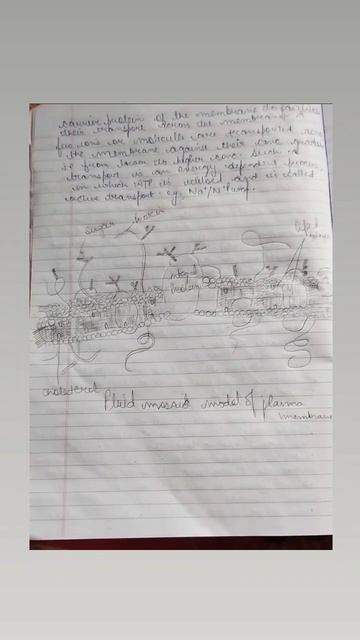 carrier protein of the membrane to facilitate
their transport across the membrane. A
few ions or molecules are transported across
the membrane against their conc. gradient
ie from lower to higher conc. Such a
transport is an energy dependent process
in which ATP is utilised and is called
active transport eg. Na+/K+ Pump.
sugar
protein
integ
protein
cholesterol
Fluid mosaic model of plasma
membrane